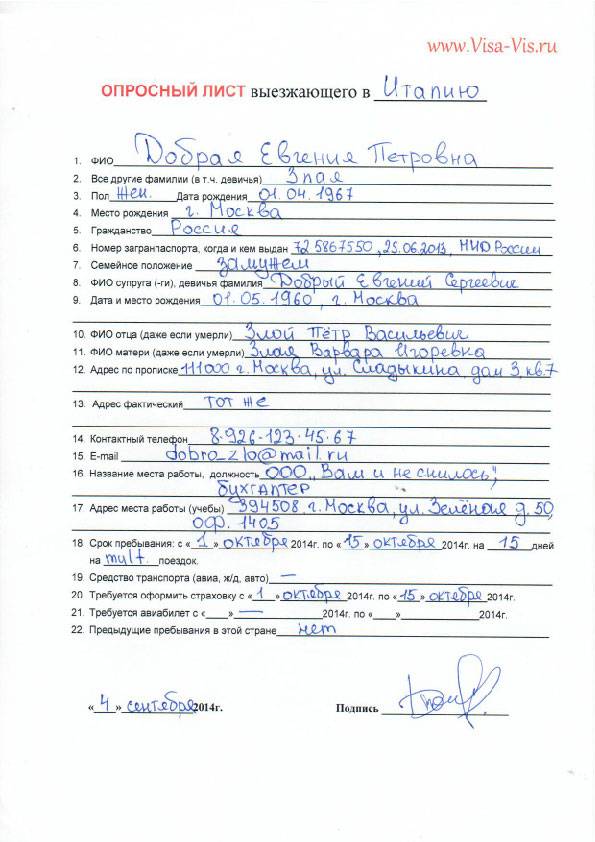 www.Visa-Vis.ru
ОПРОСНЫЙ ЛИСТ выезжающего в Италию
1. ФИО Добрая Евгения Петровна
2. Все другие фамилии (в т.ч. девичья) Злая
3. Пол жен. Дата рождения 01.04.1967
4. Место рождения г. Москва
5. Гражданство Россия
6. Номер загранпаспорта, когда и кем выдан 72 5867550, 25.06.2013, МИД России
7. Семейное положение замужем
8. ФИО супруга (-ги), девичья фамилия Добрый Евгений Сергеевич
9. Дата и место рождения 01.05.1960, г. Москва
10. ФИО отца (даже если умерли) Злой Пётр Васильевич
11. ФИО матери (даже если умерли) Злая Варвара Игоревна
12. Адрес по прописке 111000 г. Москва, ул. Сладыкина, дом 3, кв.7
13. Адрес фактический тот же
14. Контактный телефон 8-926-123-45-67
15. E-mail dobro_zlo@mail.ru
16. Название места работы, должность ООО „Вам и не снилось",
бухгалтер
17 Адрес места работы (учебы) 394508, г. Москва, ул. Зелёная д. 50,
оф. 1405
18 Срок пребывания: с «1» октября 2014г. по «15» октября 2014г. на 15 дней
на mult. поездок.
19. Средство транспорта (авиа, ж/д, авто) —
20. Требуется оформить страховку с «1» октября 2014г. по «15» октября 2014г.
21. Требуется авиабилет с «____» — 2014г. по «____»____ 2014г.
22. Предыдущие пребывания в этой стране нет
«4» сентября 2014г. Подпись